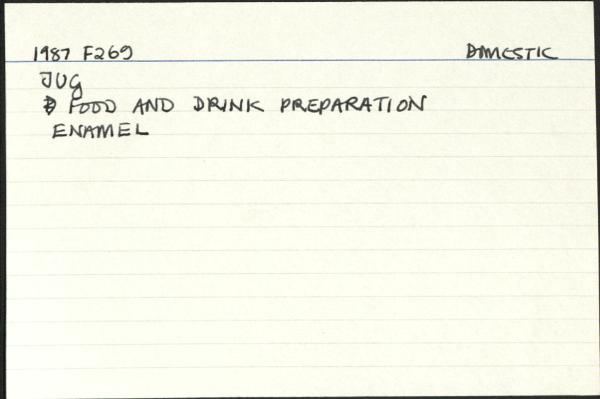 1987 F269 DOMESTIC
JUG
FOOD AND DRINK PREPARATION
ENAMEL